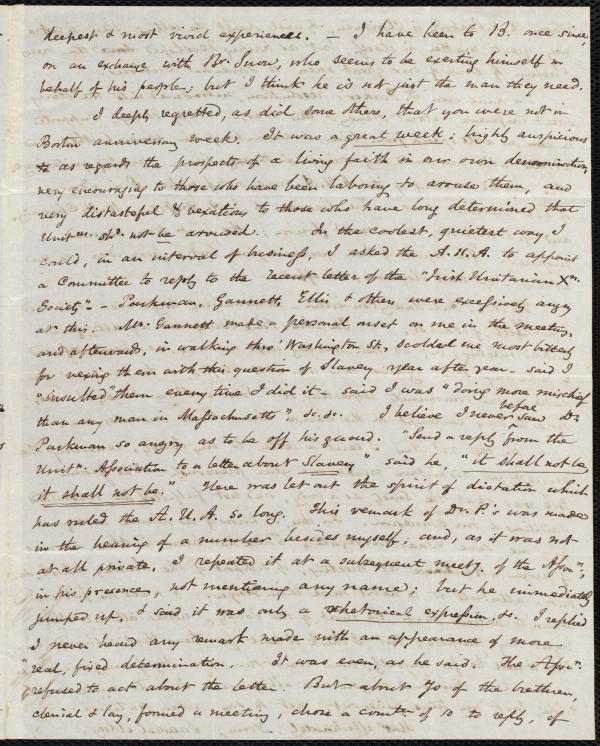 deepest & most vivid experiences. — I have been to B. once since,
on an exchange with Br. Snow, who seems to be exerting himself in
behalf of his people; but I think he is not just the man they need.
I deeply regretted, as did some others, that you were not in
Boston anniversary week. It was a great week; highly auspicious
as regards the prospects of a living faith in our own denomination,
very encouraging to those who have been laboring to arouse them, and
very distasteful & vexatious to those who have long determined that
Unitns. shd. not be aroused. In the coolest, quietest way I
could, in an interval of business, I asked the A.U.A. to appoint
a Committee to reply to the recent letter of the "Irish Unitarian Xn.
Society" — Parkman, Gannett, Ellis & others were excessively angry
at this. Mr. Gannett made a personal onset on me in the meeting,
and afterwards, in walking thro' Washington St., scolded me most bitterly
for vexing them with this question of Slavery year after year — said I
"insulted" them every time I did it — said I was "doing more mischief
than any man in Massachusetts", &c. &c. I believe I never before saw Dr.
Parkman so angry as to be off his guard. "Send a reply from the
Unitn. Association to a letter about Slavery", said he, "it shall not be,
it shall not be." Here was let out the spirit of dictation which
has ruled the A.U.A. so long. This remark of Dr. P.'s was made
in the hearing of a number besides myself; and, as it was not
at all private, I repeated it at a subsequent meetg. of the Assocn.,
in his presence, not mentioning any name; but he immediately
jumped up, & said it was only a rhetorical expression, &c. I replied
I never heard any remark made with an appearance of more
real, fixed determination. It was even, as he said. The Assocn.
refused to act about the letter. But about 70 of the brethren,
clerical & lay, formed a meeting, chose a comtee. of 10 to reply, of